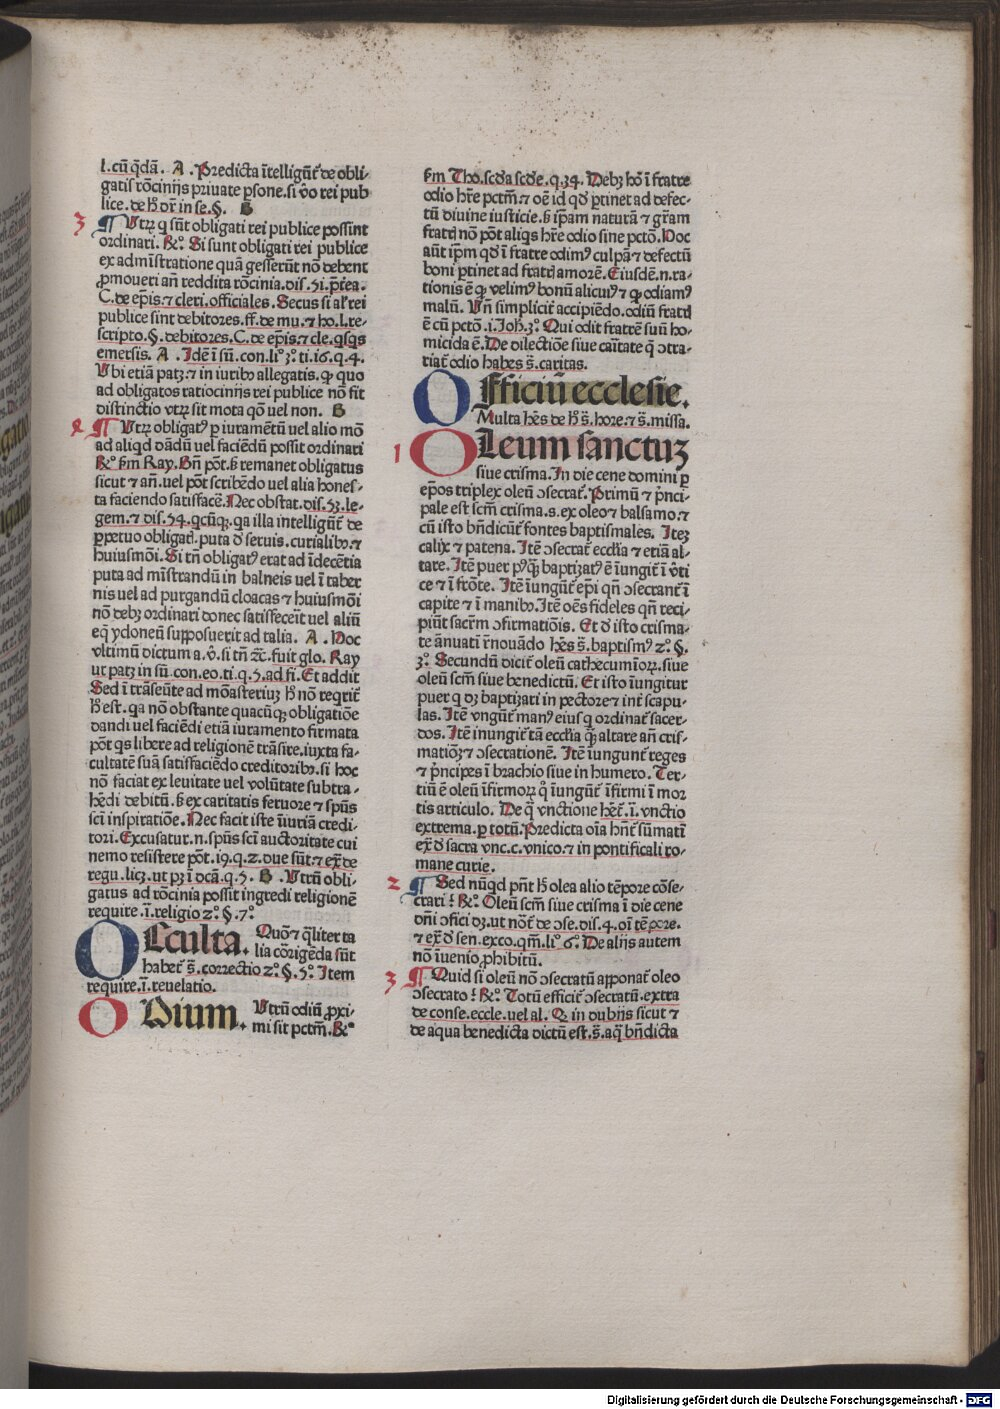 l. cū q̄dā. A. Predicta ītelligūt̄ de obli-
gatis rōcinijs priuate ꝑsone. si v̄o rei pub
lice. de h̄ dr̄ in se. §. B
3 ¶ Vtrꝝ q̄ sūnt obligati rei publice possint
ordinari. R̄º. Si sunt obligati rei publice
ex admīstratione quā gesserūt nō debent
ꝓmoueri an̄ reddita rōcinia. dis. 51. p̄t̄ea.
C. de ep̄is. ⁊ cleri. officiales. Secus si al̄r rei
publice sint debitores. ff. de mu. ⁊ ho. l. re-
scripto. §. debitores. C. de ep̄is. ⁊ cle. q̄sq̄s
emersis. A. Idē ī sū. con. liº 3º ti. 16. q. 4.
Vbi etiā patꝫ ⁊ in iurib⁹ allegatis. ꝙ quo
ad obligatos ratiocinijs rei publice nō fit
distinctio vtrꝝ sit mota qō uel non. B
2 ¶ Vtrꝝ obligat⁹ ꝑ iuramētū uel alio mō
ad aliqd dādū uel faciēdū possit ordinari
R̄º ẜm Ray. Bn̄ pōt. ẜ remanet obligatus
sicut ⁊ an̄. uel pōt scribēdo uel alia hones-
ta faciendo satisfacē. Nec obstat. dis. 53. le-
gem. ⁊ dis. 54. q̄cūqꝫ. qa illa intelligūt̄ de
ꝑpetuo obligat̄. puta d̄ seruis. curialib⁹. ⁊
huiusmōi. Si tn̄ obligat⁹ erat ad īdecētia
puta ad mīstrandū in balneis uel ī taber
nis uel ad purgandū cloacas ⁊ huiusmōi
nō debꝫ ordinari donec satisfeceīt uel aliū
eq̄ ydoneū supposuerit ad talia. A. Hoc
vltimū dictum a. v̄. si tn̄ ⁊c̄. fuit glo. Ray
ut patꝫ in sū. con. eo. ti. q. 5. ad fi. Et addit
Sed ī trāseūte ad mōasteriuꝫ h̄ nō reqrit̄
h̄ est. qa nō obstante quacūqꝫ obligatiōe
dandi uel faciēdi etiā iuramento firmata
pōt qs libere ad religionē trāsire. iuxta fa-
cultatē suā satisfaciēdo creditorib⁹. si hoc
nō faciat ex leuitate uel volūtate subtra-
hēdi debitū. ẜ ex caritatis feruore ⁊ sp̄ūs
sc̄i inspiratiōe. Nec facit iste īiuriā credi-
tori. Excusatur. n. sp̄ūs sc̄i auctoritate cui
nemo resistere pōt. 19. q. 2. due sūt. ⁊ ex̄ de
regu. licꝫ. ut pꝫ ī dc̄ā. q. 5. B. Vtrū obli-
gatus ad rōcinia possit ingredi religionē
require. ī. religio 2º §. 7º
OCculta. Quō ⁊ q̄liter ta
lia cōrigēda sūt
habet̄ s̄. correctio 2º §. 5º Item
require. ī. reuelatio.
ODium. Vtrū odiū ꝓxi-
mi sit pctm̄. R̄º
ẜm Tho. sc̄d̄a sc̄d̄e. q. 34. Debꝫ hō ī fratre
odio hr̄e pctm̄. ⁊ oē id qd̄ ꝑtinet ad defec-
tū diuine iusticie. ẜ ip̄am naturā ⁊ gr̄am
fratrꝭ nō pōt aliqs hr̄e odio sine pctō. Hoc
aūt ip̄m qd̄ ī fratre odim⁹ culpā ⁊ defectū
boni ꝑtinet ad fratrꝭ amorē. Eiusdē. n. ra-
tionis ē ꝙ velim⁹ bonū alicui⁹ ⁊ ꝙ odiam⁹
malū. Vn̄ simplicit̄ accipiēdo. odiū fratrꝭ
ē cū pctō. 1. Joh. 3º Qui odit fratrē suū ho-
micida ē. De dilectiōe siue cari̅tate q̄ ↄtra-
riat̄ odio habes s̄. caritas.
OFficiū ecclesie.
Multa hēs de h̄ s̄. hore. ⁊ s̄. missa.
1 OLeum sanctuꝫ
siue crisma. In die cene domini ꝑ
ep̄os triplex oleū ↄsecrat̄. Primū ⁊ p̄nci-
pale est sc̄m crisma. s. ex oleo ⁊ balsamo. ⁊
cū isto bn̄dicūt̄ fontes baptismales. Iteꝫ
calix ⁊ patena. Itē ↄsecrat̄ eccl̄ia ⁊ etiā al-
tare. Itē puer pꝰqꝫ baptizat⁹ ē īungit̄ ī v̄ti
ce ⁊ ī frōte. Itē īungūt̄ ep̄i qn̄ ↄsecrant̄ ī
capite ⁊ ī manib⁹. Itē oēs fideles qn̄ reci-
piūt sacr̄m ↄfirmatiōis. Et d̄ isto crisma-
te ānuati r̄nouādo hēs s̄. baptism⁹ 2º. §.
3º. Secundū dicit̄ oleū cathecuminoꝝ. siue
oleū sc̄m siue benedictū. Et isto īungitur
puer q dꝫ baptizari in pectore ⁊ int̄ scapu-
las. Itē vngūt̄ man⁹ eius q ordinat̄ sacer-
dos. Itē inungit̄ tā eccl̄ia qꝫ altare an̄ cris-
matiōꝫ ⁊ ↄsecrationē. Itē īungunt̄ reges
⁊ p̄ncipes ī brachio siue in humero. Ter-
tiū ē oleū īfirmoꝝ qº īungūt̄ īfirmi ī mor
tis articulo. De q̄ vnctione hēt̄. ī. vnctio
extrema. ꝑ totū. Predicta oīa hn̄t̄ sūmatī
ex̄ d̄ sacra vnc. c. vnico. ⁊ in pontificali ro-
mane curie.
2 ¶ Sed nūqd pn̄t h̄ olea alio tēpore cōse-
crari? R̄º. Oleū sc̄m siue crisma ī die cene
dn̄i ↄfici dꝫ. ut nōt̄ de ↄse. dis. 4. oī tēpore.
⁊ ex̄ d̄ sen. exco. qm̄. liº 6º. De alijs autem
nō īuenio ꝓhibitū.
3 ¶ Quid si oleū nō ↄsecratū apponat̄ oleo
ↄsecrato? R̄º. Totū efficit̄ ↄsecratū. extra
de conse. eccle. uel al. Qꝫ in dubijs sicut ⁊
de aqua benedicta dictū est. s̄. aq̄ bn̄dicta
Digitalisierung gefördert durch die Deutsche Forschungsgemeinschaft - DFG